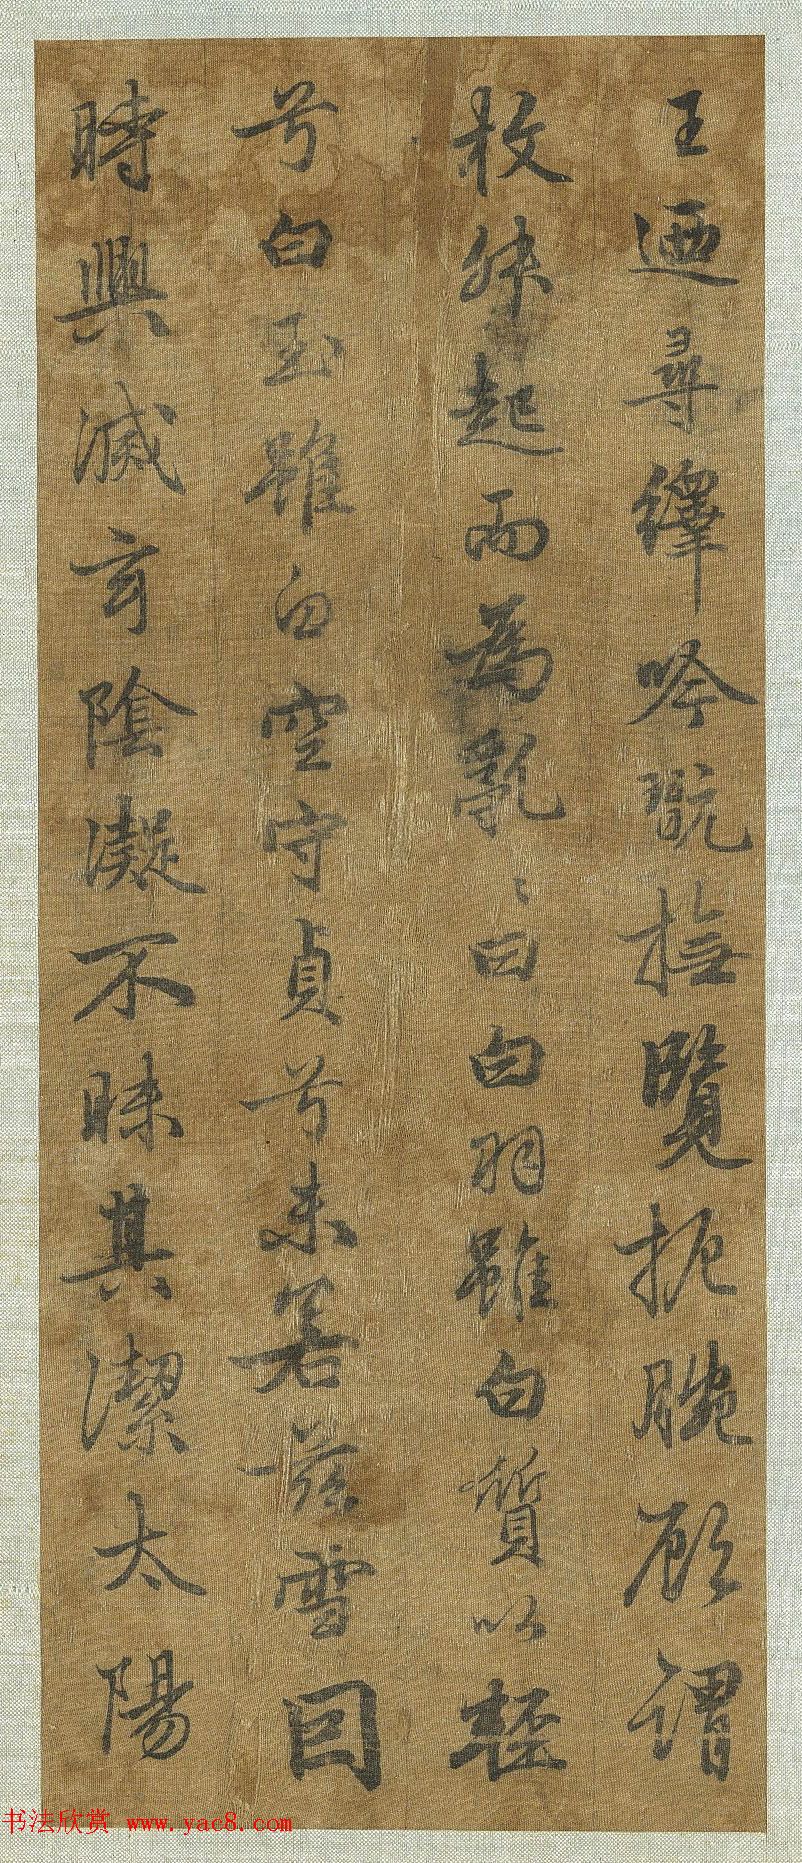 王廼尋繹吟翫撫覽扼腕顧謂
枚叔起而為亂〻曰白羽雖白質以輕
兮白玉雖白空守貞兮未若茲雪曰
時興滅玄陰凝不昧其潔太陽
书法欣赏 www.yac8.com